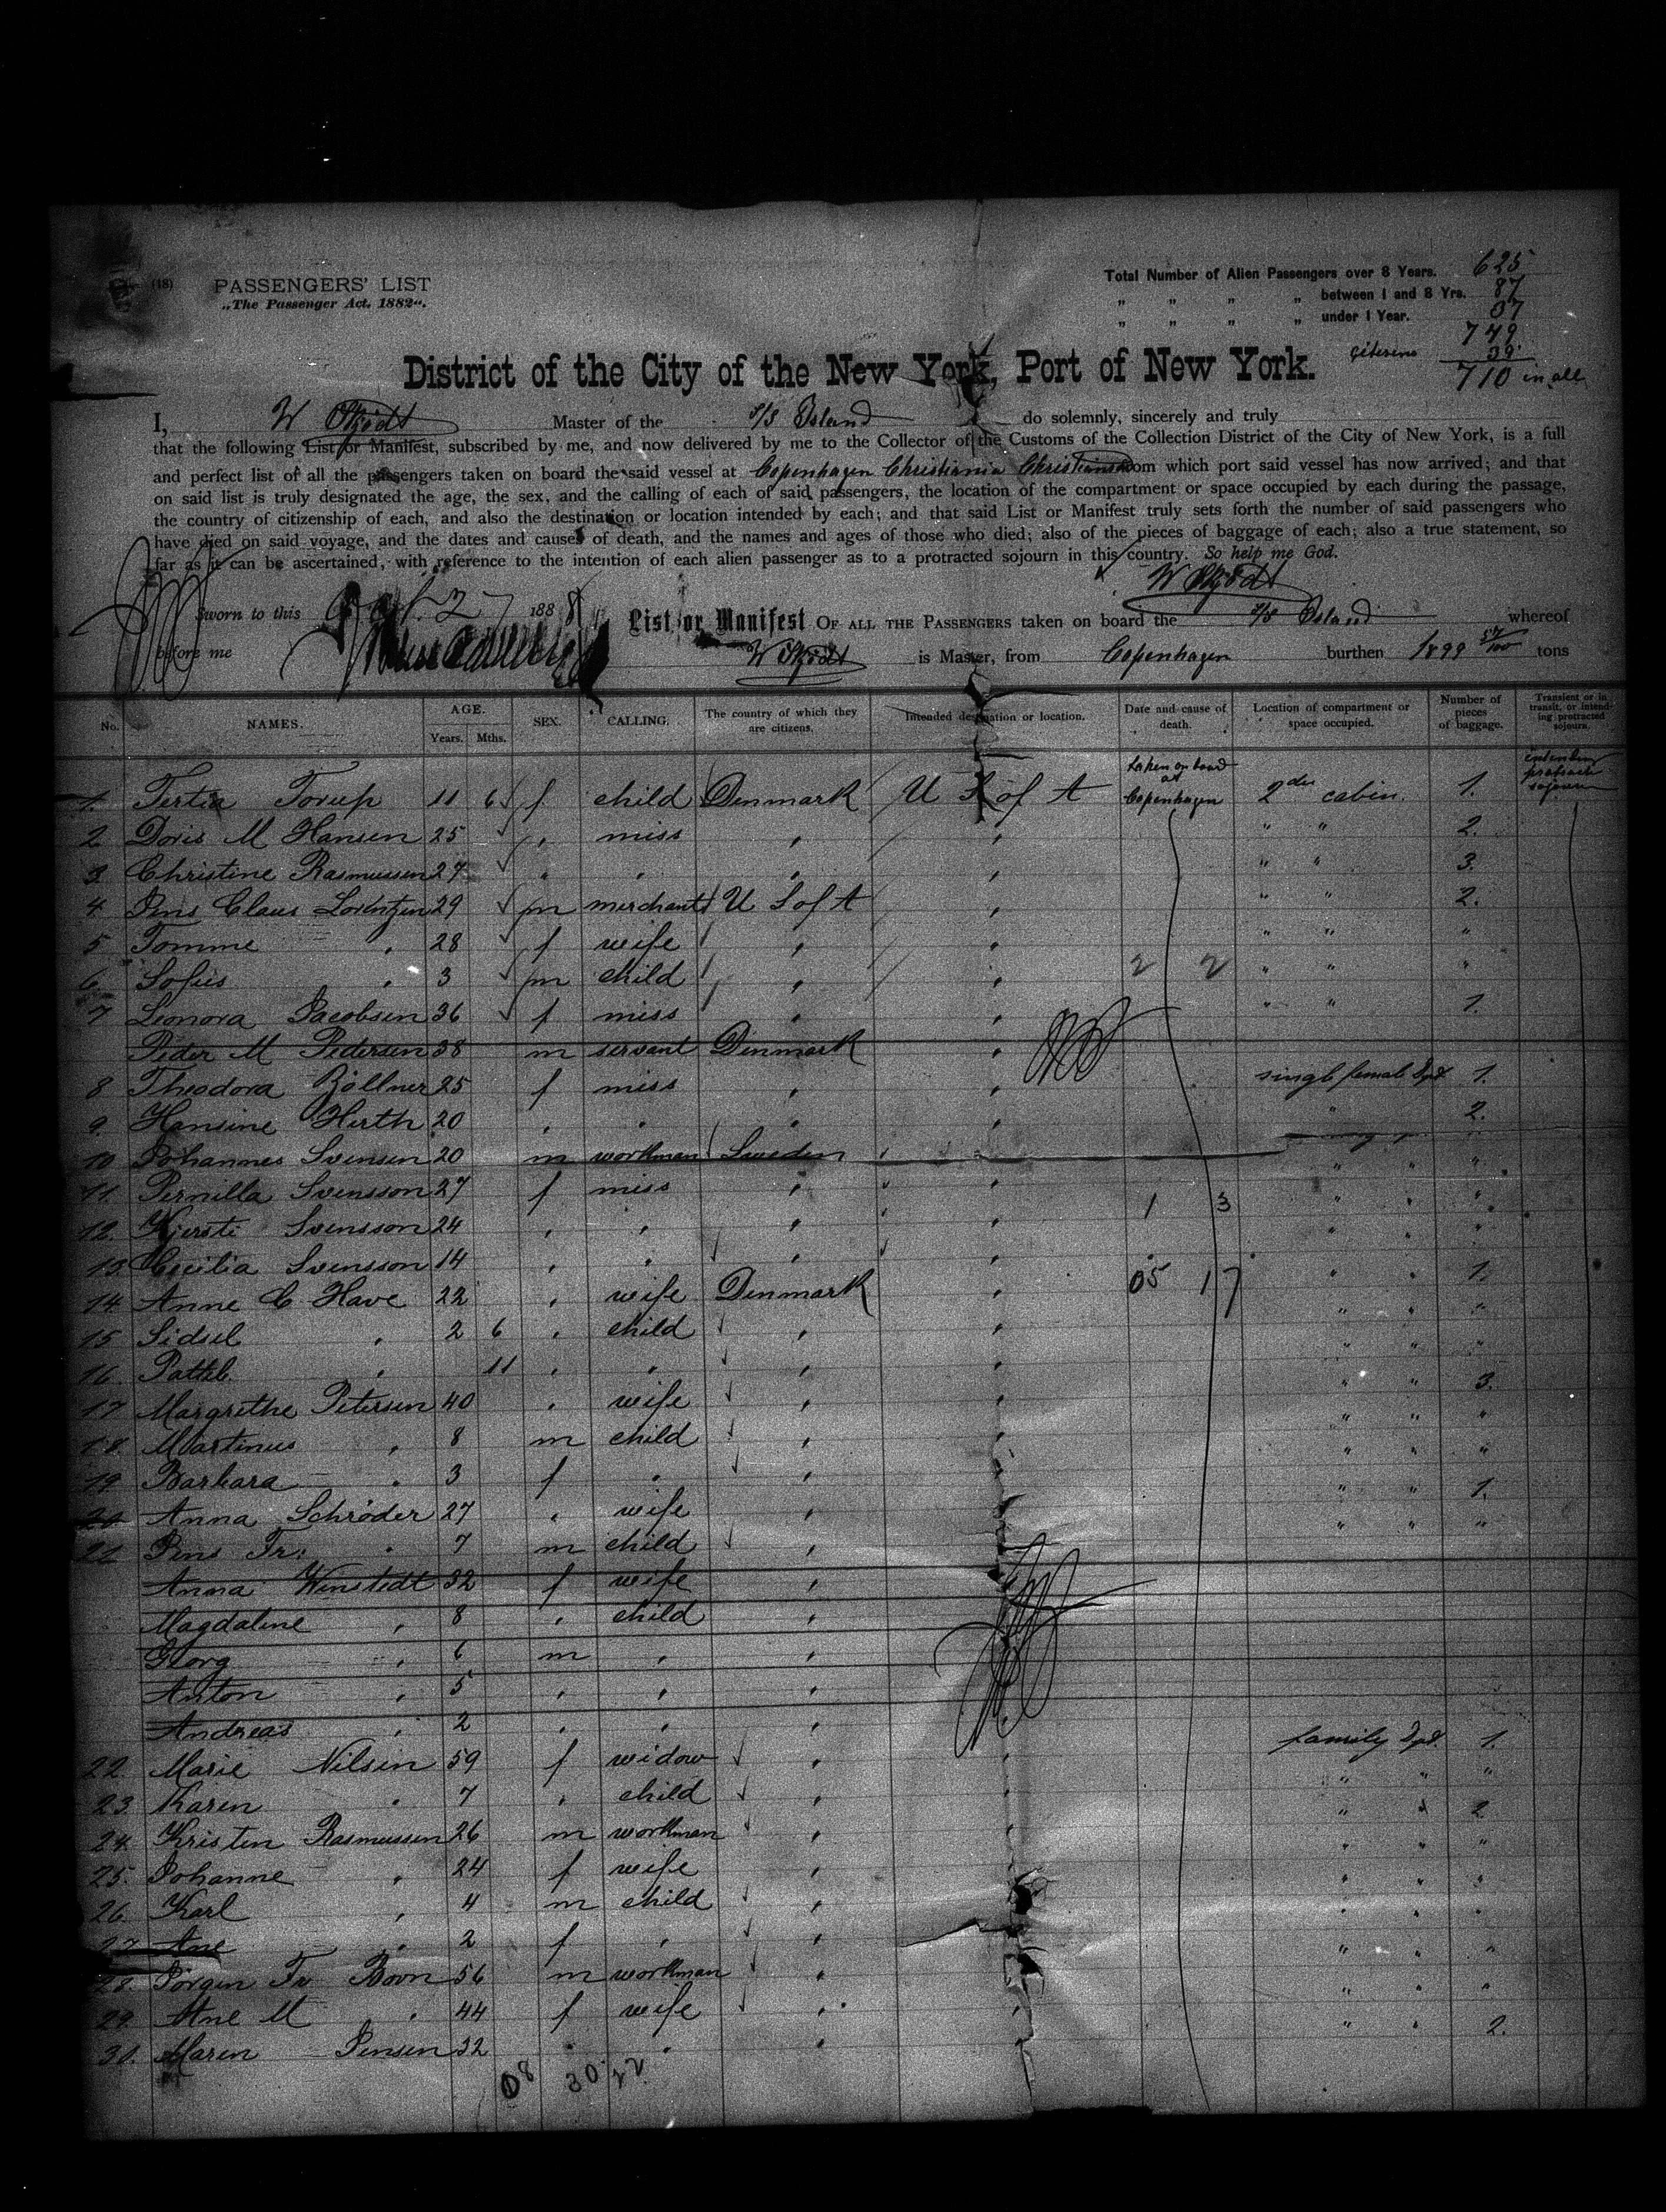 (18) PASSENGERS' LIST
„The Passenger Act. 1882“.
Total Number of Alien Passengers over 8 Years. 625
„ „ „ „ between 1 and 8 Yrs. 87
„ „ „ „ under 1 Year. 37
749
39
710 in all
District of the City of the New York, Port of New York.
I, W Skjödt Master of the S/S Island do solemnly, sincerely and truly
that the following List or Manifest, subscribed by me, and now delivered by me to the Collector of the Customs of the Collection District of the City of New York, is a full
and perfect list of all the passengers taken on board the said vessel at Copenhagen Christiania Christiansand from which port said vessel has now arrived; and that
on said list is truly designated the age, the sex, and the calling of each of said passengers, the location of the compartment or space occupied by each during the passage,
the country of citizenship of each, and also the destination or location intended by each; and that said List or Manifest truly sets forth the number of said passengers who
have died on said voyage, and the dates and causes of death, and the names and ages of those who died; also of the pieces of baggage of each; also a true statement, so
far as it can be ascertained, with reference to the intention of each alien passenger as to a protracted sojourn in this country. So help me God.
W Skjödt
Sworn to this 27 1888
before me
List or Manifest OF ALL THE PASSENGERS taken on board the S/S Island whereof
W Skjödt is Master, from Copenhagen burthen 1899 57/100 tons
No. NAMES. AGE. Years. Mths. SEX. CALLING. The country of which they are citizens. Intended destination or location. Date and cause of death. Location of compartment or space occupied. Number of pieces of baggage. Transient or in transit, or intending protracted sojourn.
1. Tertia Torup 11 6 f child Denmark U S of A taken on board at Copenhagen 2den cabin. 1.
2 Doris M Hansen 25 " miss " " " " 2.
3 Christine Rasmussen 27 " " " " " " 3.
4. Jens Claus Lorentzen 29 m merchant U S of A " " " 2.
5 Tomme " 28 f wife " " " " "
6 Sofus " 3 m child " " 2 2 " " "
7 Leonora Jacobsen 36 f miss " " " " 1.
Peder M Pedersen 38 m servant Denmark "
8 Theodora Zöllner 25 f miss " " single female 1.
9. Hansine Hirth 20 " " " " " 2.
10 Johannes Svensen 20 m workman Sweden "
11. Pernilla Svensson 27 f miss " " " " "
12. Kjersti Svensson 24 " " " " 1 3 " " "
13. Cecilia Svensson 14 " " " " " " "
14. Anne C Have 22 " wife Denmark " 05 17 " " 1.
15 Sidsel " 2 6 " child " " " " "
16. " 11 " " " " " " "
17 Margrethe Petersen 40 " wife " " " " 3.
18. Martinus " 8 m child " " " " "
19. Barbara " 3 f " " " " " "
20. Anna Schröder 27 " wife " " " " 1.
21. Jens Fr. " 7 m child " " " "
Anna Winstedt 32 f wife "
Magdaline " 8 " child "
Georg " 6 m " "
Anton " 5 " " "
Andreas " 2 " " "
22. Marie Nilsen 59 f widow " " family 1.
23. Karen " 7 " child " " " " "
24. Kristen Rasmussen 26 m workman " " " " 2
25. Johanne " 24 f wife " " " " "
26. Karl " 4 m child " " " " "
27. Ane " 2 f " " " " "
28. Jörgen Fr Bovn 56 m workman " " " "
29. Ane M " 44 f wife " " " " "
30. Maren Jensen 32 " " " " " " 2.
08 30 22